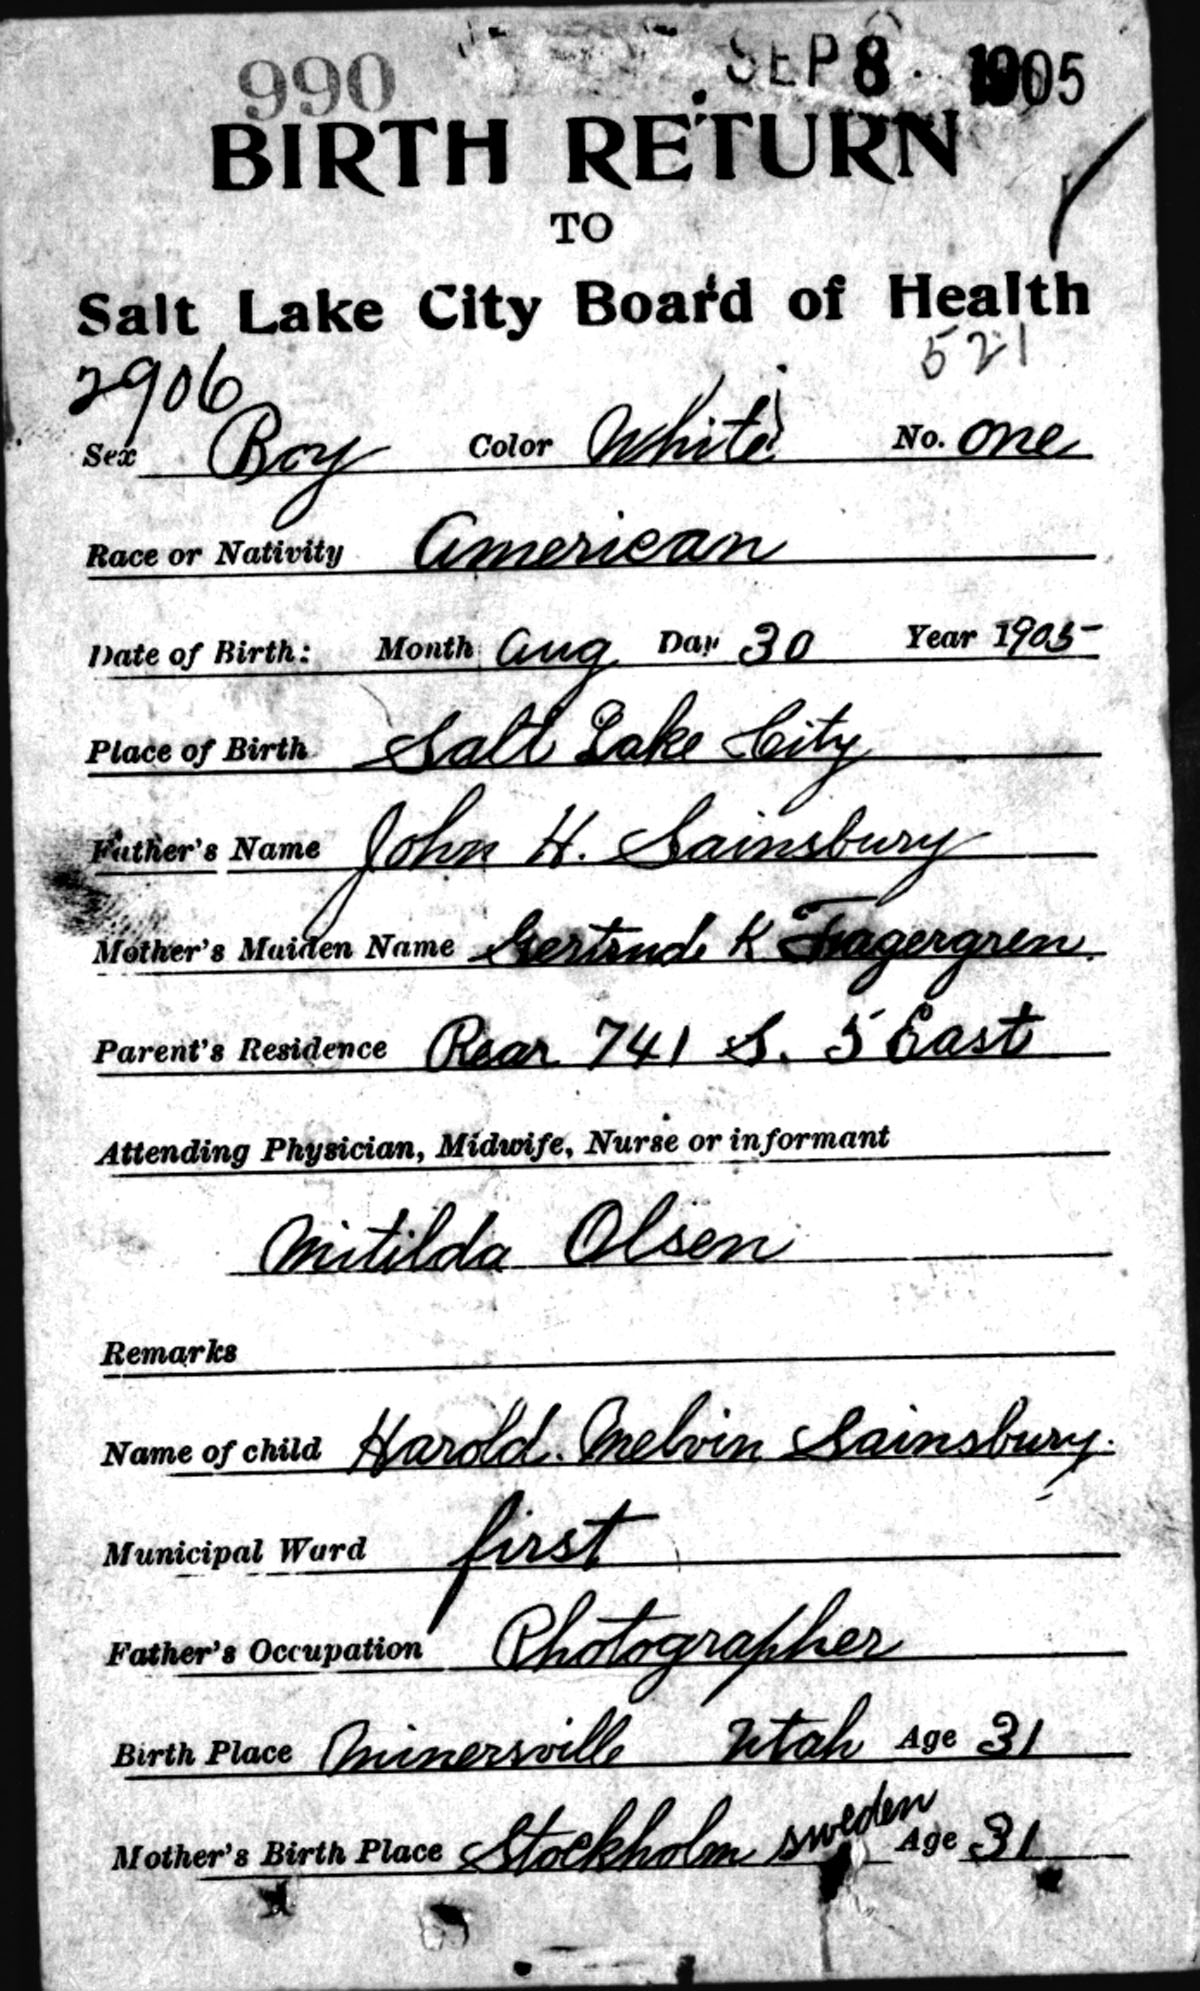 990 SEP 8 1905
BIRTH RETURN
TO
Salt Lake City Board of Health
2906 521
Sex Boy Color White No. one
Race or Nativity American
Date of Birth: Month Aug Day 30 Year 1905
Place of Birth Salt Lake City
Father's Name John H. Sainsbury
Mother's Maiden Name Gertrude K Fagergren.
Parent's Residence Rear 741 S. 5 East
Attending Physician, Midwife, Nurse or informant
Mitilda Olsen
Remarks
Name of child Harold. Melvin Sainsbury.
Municipal Ward first
Father's Occupation Photographer
Birth Place Minersville Utah Age 31
Mother's Birth Place Stockholm sweden Age 31